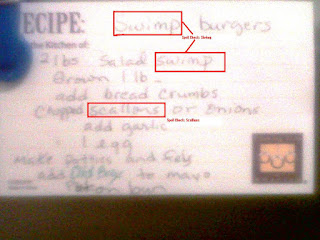 ECIPE:
the Kitchen of:
Swimp burgers
Spell Check: Shrimp
2 lbs Salad swimp
Brown 1 lb
add bread crumbs
Chopped scallons or Onions
Spell Check: Scallions
add garlic
1 egg
Make Patties and
add Old Bay to mayo
on bun